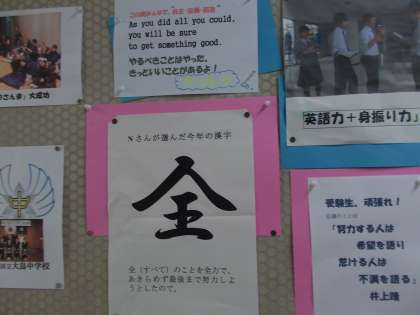 さんま」大成功
As you did all you could,
you will be sure
to get something good.
やるべきことはやった。
きっといいことがあるよ！
英語力＋身振り力」
Nさんが選んだ今年の漢字
全
全（すべて）のことを全力で、
あきらめず最後まで努力し
ようとしたので。
大島中学校
受験生、頑張れ！
「努力する人は
希望を語り
怠ける人は
不満を語る」
井上靖